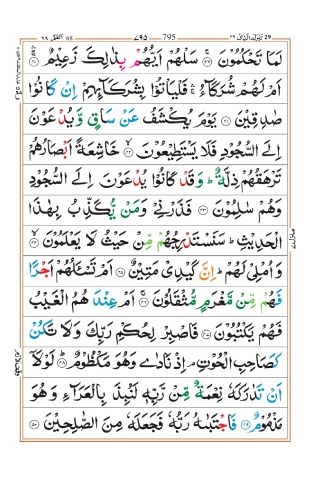 ٢٩ تبٰرك الذى ٢٩ 795 ٧٩٥ القلم ٦٨ 68
لَمَا تَحْكُمُوْنَ ۟﴿۳۹﴾ سَلْهُمْ اَيُّهُمْ بِذٰلِكَ زَعِيْمٌ ۟﴿۴۰﴾
اَمْ لَهُمْ شُرَكَآءُ ۛۚ فَلْيَاْتُوْا بِشُرَكَآئِهِمْ اِنْ كَانُوْا
صٰدِقِيْنَ ﴿۴۱﴾ يَوْمَ يُكْشَفُ عَنْ سَاقٍ وَّيُدْعَوْنَ
اِلَى السُّجُوْدِ فَلَا يَسْتَطِيْعُوْنَ ﴿۴۲﴾ خَاشِعَةً اَبْصَارُهُمْ
تَرْهَقُهُمْ ذِلَّةٌ ؕ وَقَدْ كَانُوْا يُدْعَوْنَ اِلَى السُّجُوْدِ
وَهُمْ سٰلِمُوْنَ ﴿۴۳﴾ فَذَرْنِيْ وَمَنْ يُّكَذِّبُ بِهٰذَا
الْحَدِيْثِ ؕ سَنَسْتَدْرِجُهُمْ مِّنْ حَيْثُ لَا يَعْلَمُوْنَ ﴿۴۴﴾
وَاُمْلِيْ لَهُمْ ؕ اِنَّ كَيْدِيْ مَتِيْنٌ ﴿۴۵﴾ اَمْ تَسْـَٔلُهُمْ اَجْرًا
فَهُمْ مِّنْ مَّغْرَمٍ مُّثْقَلُوْنَ ﴿۴۶﴾ اَمْ عِنْدَهُمُ الْغَيْبُ
فَهُمْ يَكْتُبُوْنَ ﴿۴۷﴾ فَاصْبِرْ لِحُكْمِ رَبِّكَ وَلَا تَكُنْ
كَصَاحِبِ الْحُوْتِ ۘ اِذْ نَادٰى وَهُوَ مَكْظُوْمٌ ﴿۴۸﴾ لَوْلَاۤ
اَنْ تَدٰرَكَهٗ نِعْمَةٌ مِّنْ رَّبِّهٖ لَنُبِذَ بِالْعَرَآءِ وَهُوَ
مَذْمُوْمٌ ﴿۴۹﴾ فَاجْتَبٰىهُ رَبُّهٗ فَجَعَلَهٗ مِنَ الصّٰلِحِيْنَ ﴿۵۰﴾